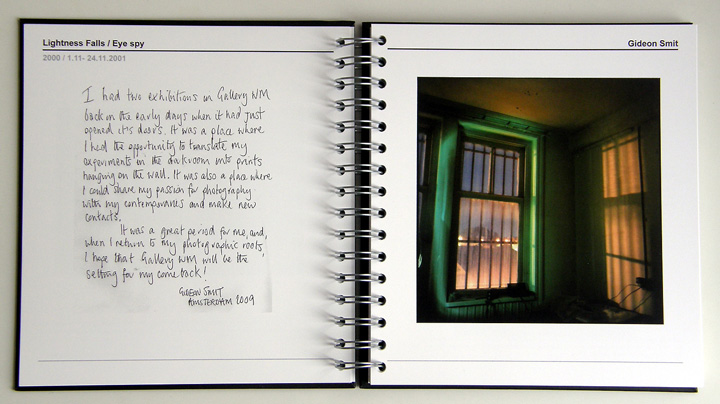 Lightness Falls / Eye spy
2000 / 1.11- 24.11.2001
I had two exhibitions in Gallery WM
back in the early days when it had just
opened it's doors. It was a place where
I had the opportunity to translate my
experiments in the darkroom into prints
hanging on the wall. It was also a place where
I could share my passion for photography
with my contemporaries and make new
contacts.
It was a great period for me, and,
when I return to my photographic roots,
I hope that Gallery WM will be the
setting for my come back!
GIDEON SMIT
AMSTERDAM 2009
Gideon Smit